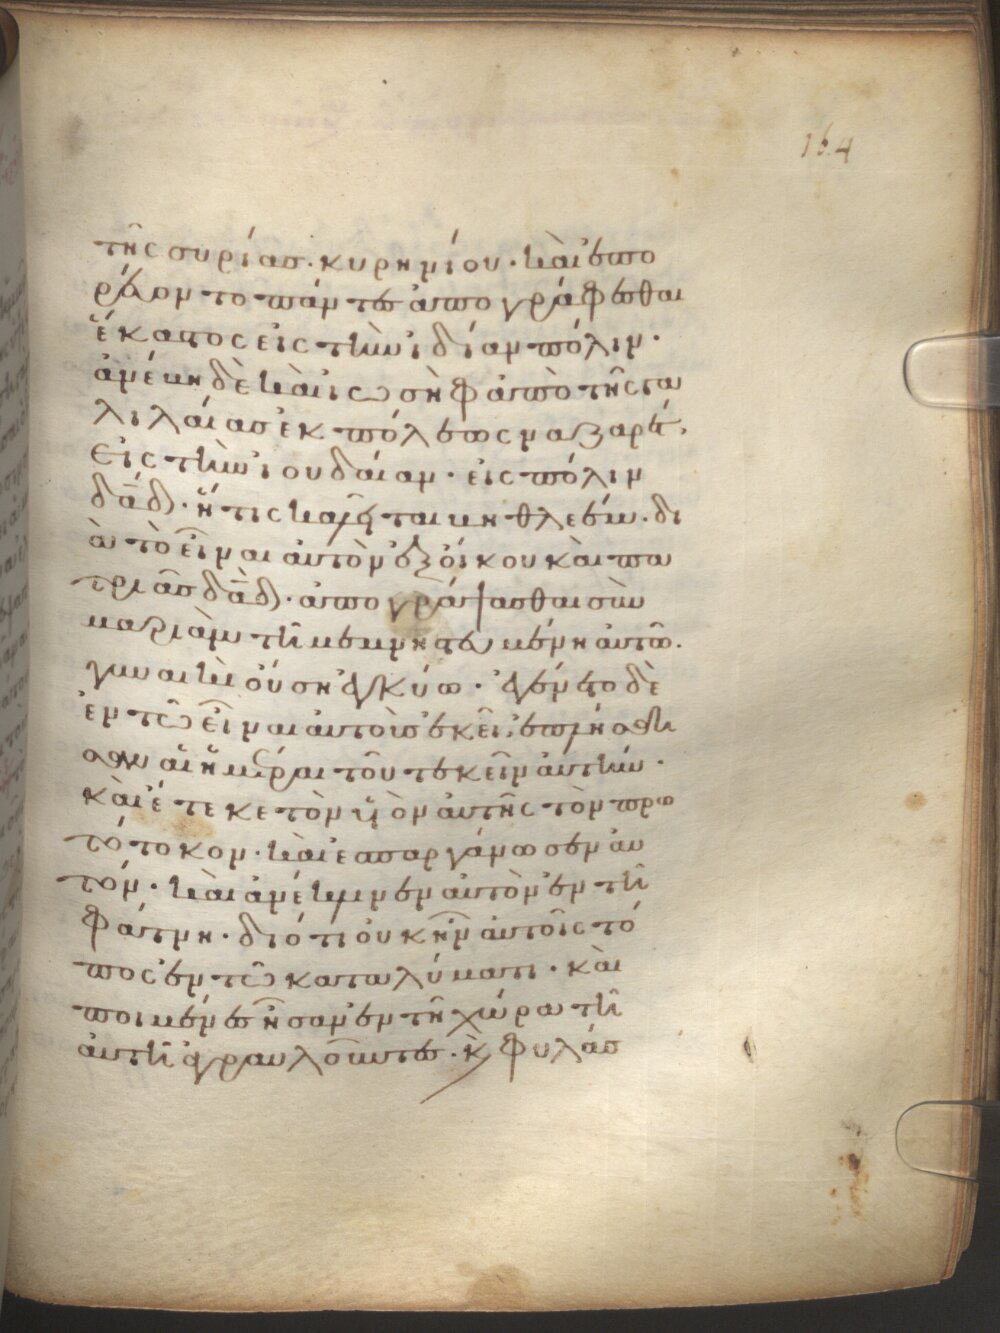 164
τῆς συρίας· κυρηνίου· καὶ ἐπο
ρεύοντο πάντες ἀπογράφεσθαι
ἕκαστος εἰς τὴν ἰδίαν πόλιν·
ἀνέβη δὲ καὶ ἰωσὴφ ἀπὸ τῆς γα
λιλαίας ἐκ πόλεως ναζαρέτ,
εἰς τὴν ἰουδαίαν· εἰς πόλιν
δα̅δ· ἥτις καλεῖται βηθλεέμ· δι
ὰ τὸ εἶναι αὐτὸν ἐξ οἴκου καὶ πα
τριᾶς δα̅δ· ἀπογράψασθαι σὺν
μαριὰμ τῆ μεμνηστευμένη αὐτῶ·
γυναικὶ οὔση ἐγκύω· ἐγένετο δὲ
ἐν τῶ εἶναι αὐτοὺς ἐκεῖ, ἐπλήσθη
σαν αἱ ἡμέραι τοῦ τεκεῖν αὐτήν·
καὶ ἔτεκε τὸν υἱὸν αὐτῆς τὸν πρω
τότοκον· καὶ ἐσπαργάνωσεν αὐ
τόν· καὶ ἀνέκλινεν αὐτὸν ἐν τῆ
φάτνη· διότι οὐκ ἦν αὐτοῖς τό
πος ἐν τῶ καταλύματι· καὶ
ποιμένες ἦσαν ἐν τῆ χώρα τῆ
αὐτῆ ἀγραυλοῦντες· κ̀ φυλάσ